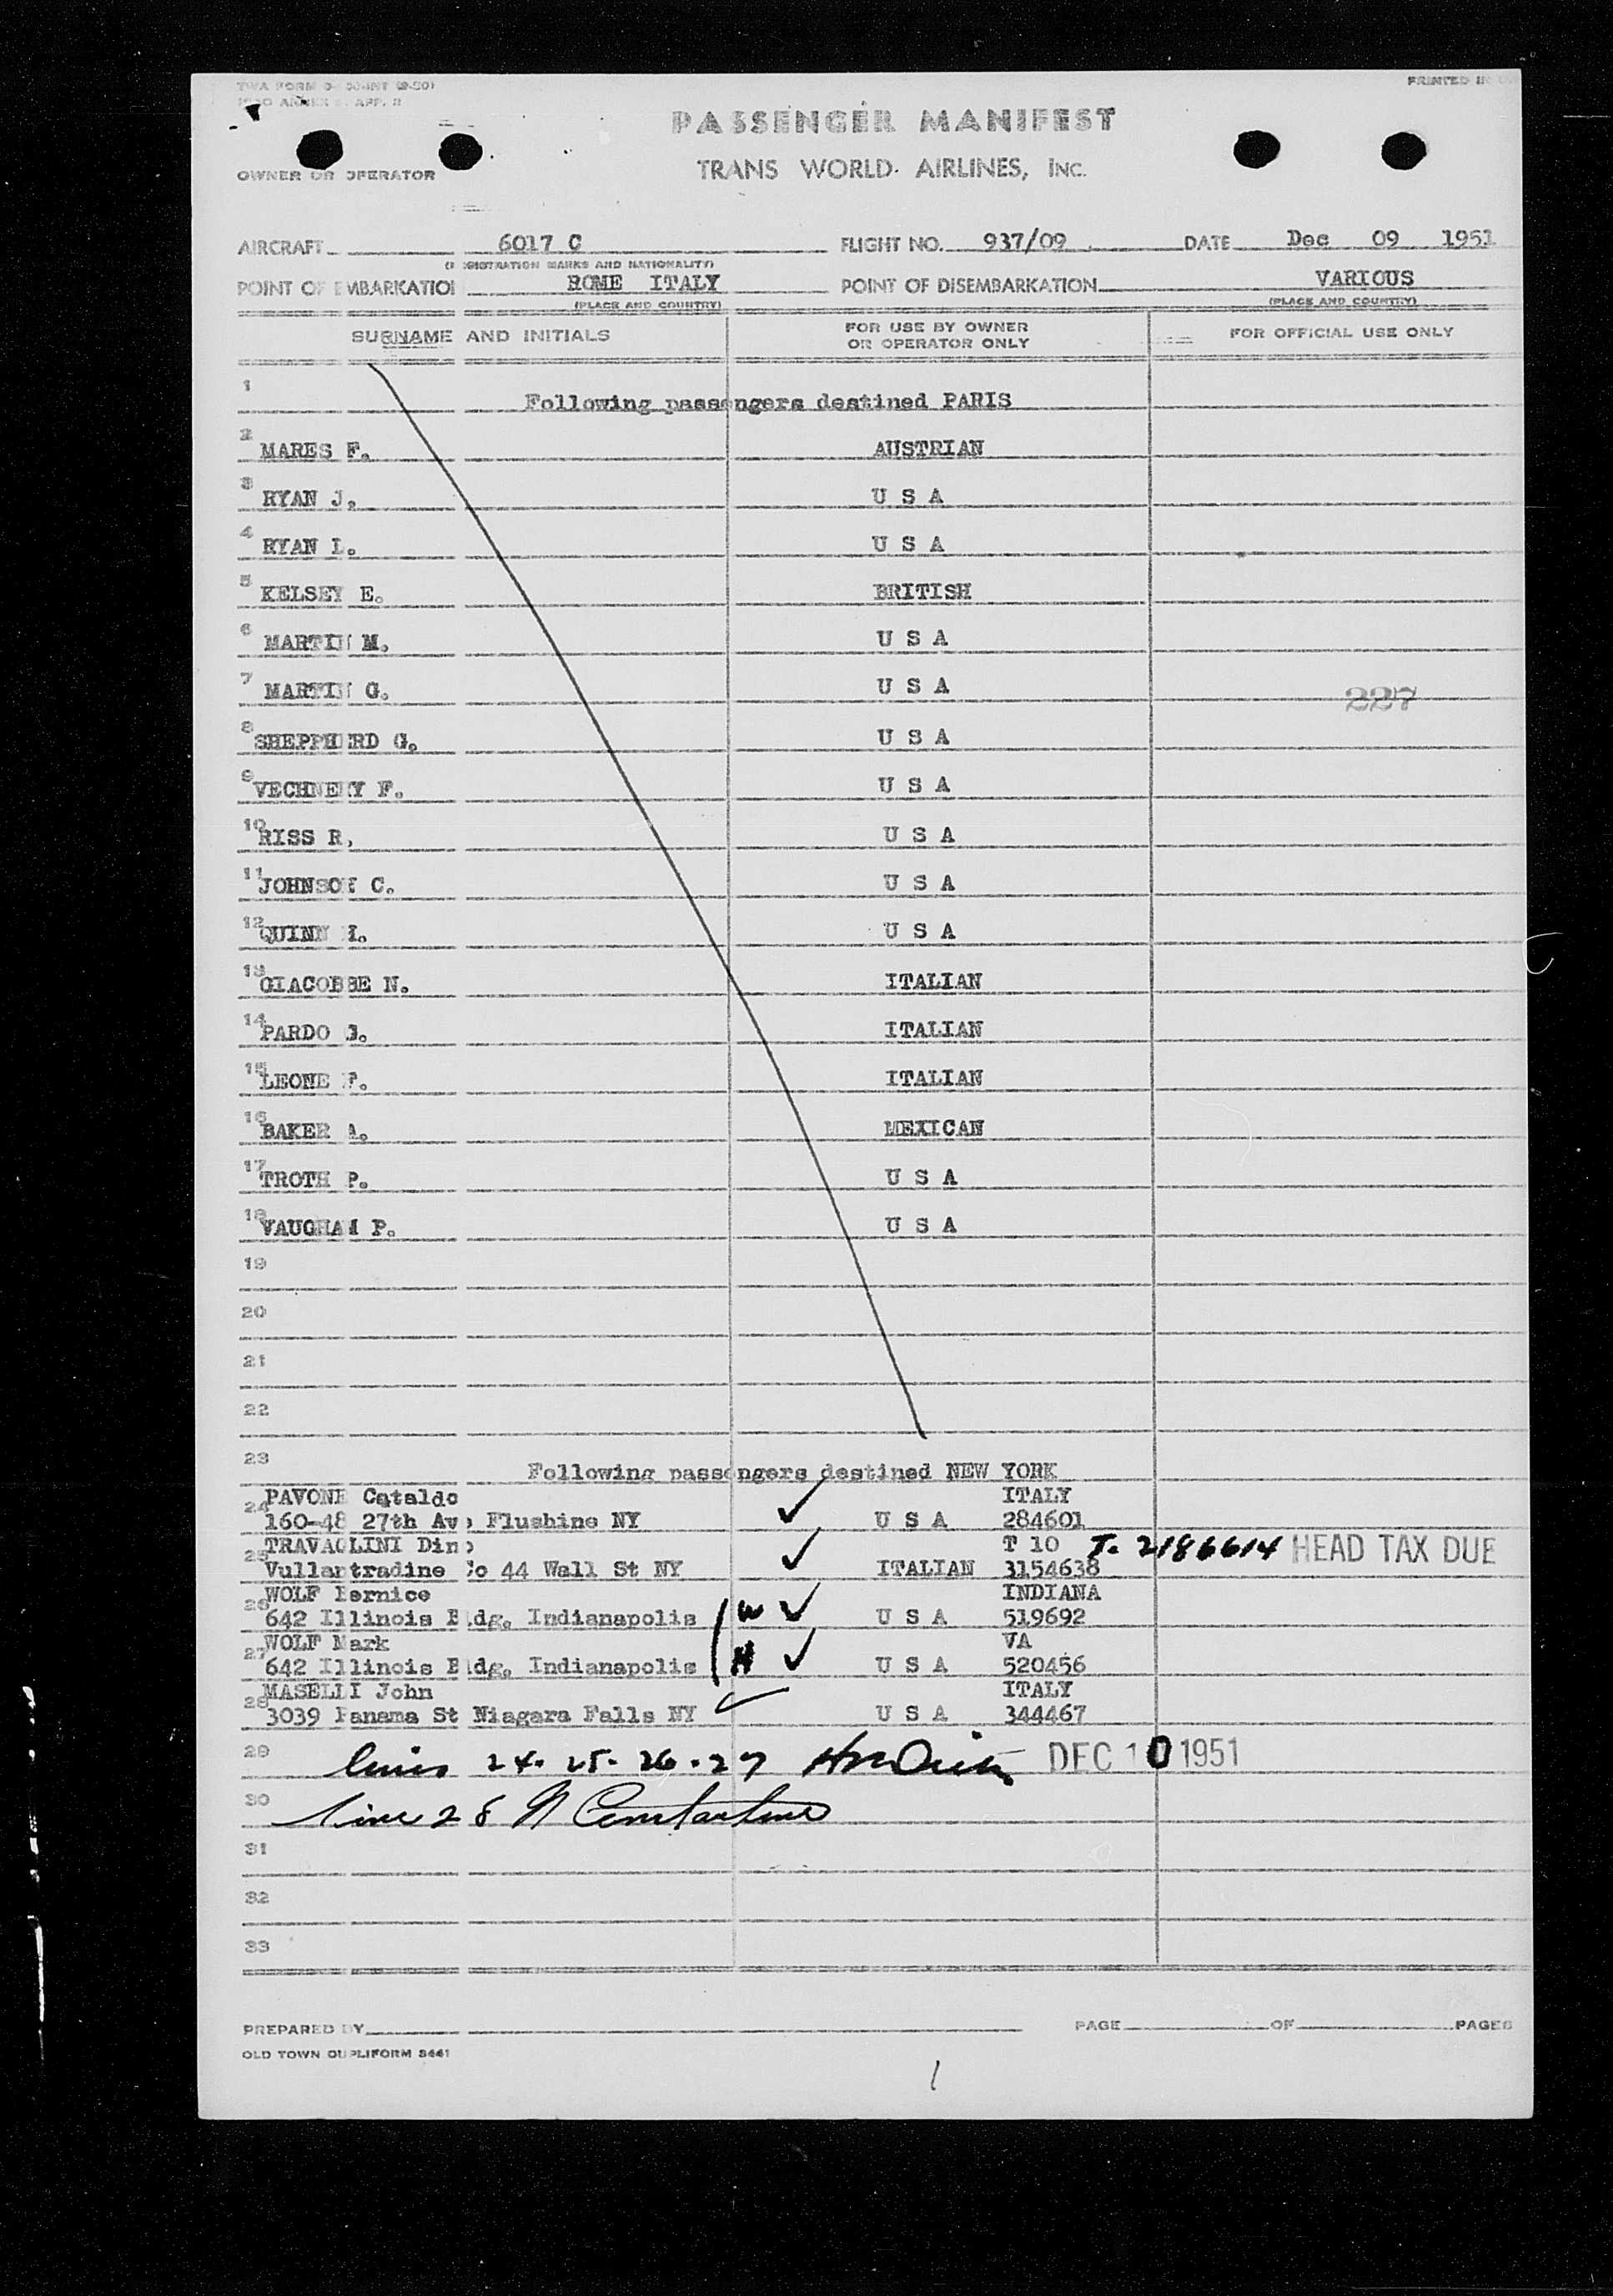 PRINTED IN
PASSENGER MANIFEST
TRANS WORLD AIRLINES, INC.
OWNER OR OPERATOR
AIRCRAFT 6017 C FLIGHT NO. 937/09 DATE Dec 09 1951
(REGISTRATION MARKS AND NATIONALITY)
POINT OF EMBARKATION ROME ITALY POINT OF DISEMBARKATION VARIOUS
(PLACE AND COUNTRY) (PLACE AND COUNTRY)
SURNAME AND INITIALS FOR USE BY OWNER OR OPERATOR ONLY FOR OFFICIAL USE ONLY
1 Following passengers destined PARIS
2 MARES F. AUSTRIAN
3 RYAN J. U S A
4 RYAN L. U S A
5 KELSEY E. BRITISH
6 MARTIN M. U S A
7 MARTIN G. U S A 227
8 SHEPPHERD G. U S A
9 VECHNERY F. U S A
10 RISS R. U S A
11 JOHNSON C. U S A
12 QUINN I. U S A
13 GIACOBBE N. ITALIAN
14 PARDO G. ITALIAN
15 LEONE F. ITALIAN
16 BAKER A. MEXICAN
17 TROTH P. U S A
18 VAUGHAM P. U S A
19
20
21
22
23 Following passengers destined NEW YORK
PAVONE Cataldo ITALY
24 160-48 27th Ave Flushing NY U S A 284601
TRAVAGLINI Dino T 10 T-2186614 HEAD TAX DUE
25 Vullantradine Co 44 Wall St NY ITALIAN 3154638
WOLF Bernice INDIANA
26 642 Illinois Bldg. Indianapolis W U S A 519692
WOLF Mark VA
27 642 Illinois Bldg. Indianapolis H U S A 520456
MASELLI John ITALY
28 3039 Panama St Niagara Falls NY U S A 344467
29 lines 24-25-26-27 DEC 10 1951
30 line 28 N Constantine
31
32
33
PREPARED BY PAGE OF PAGES
OLD TOWN DUPLIFORM 8441
1